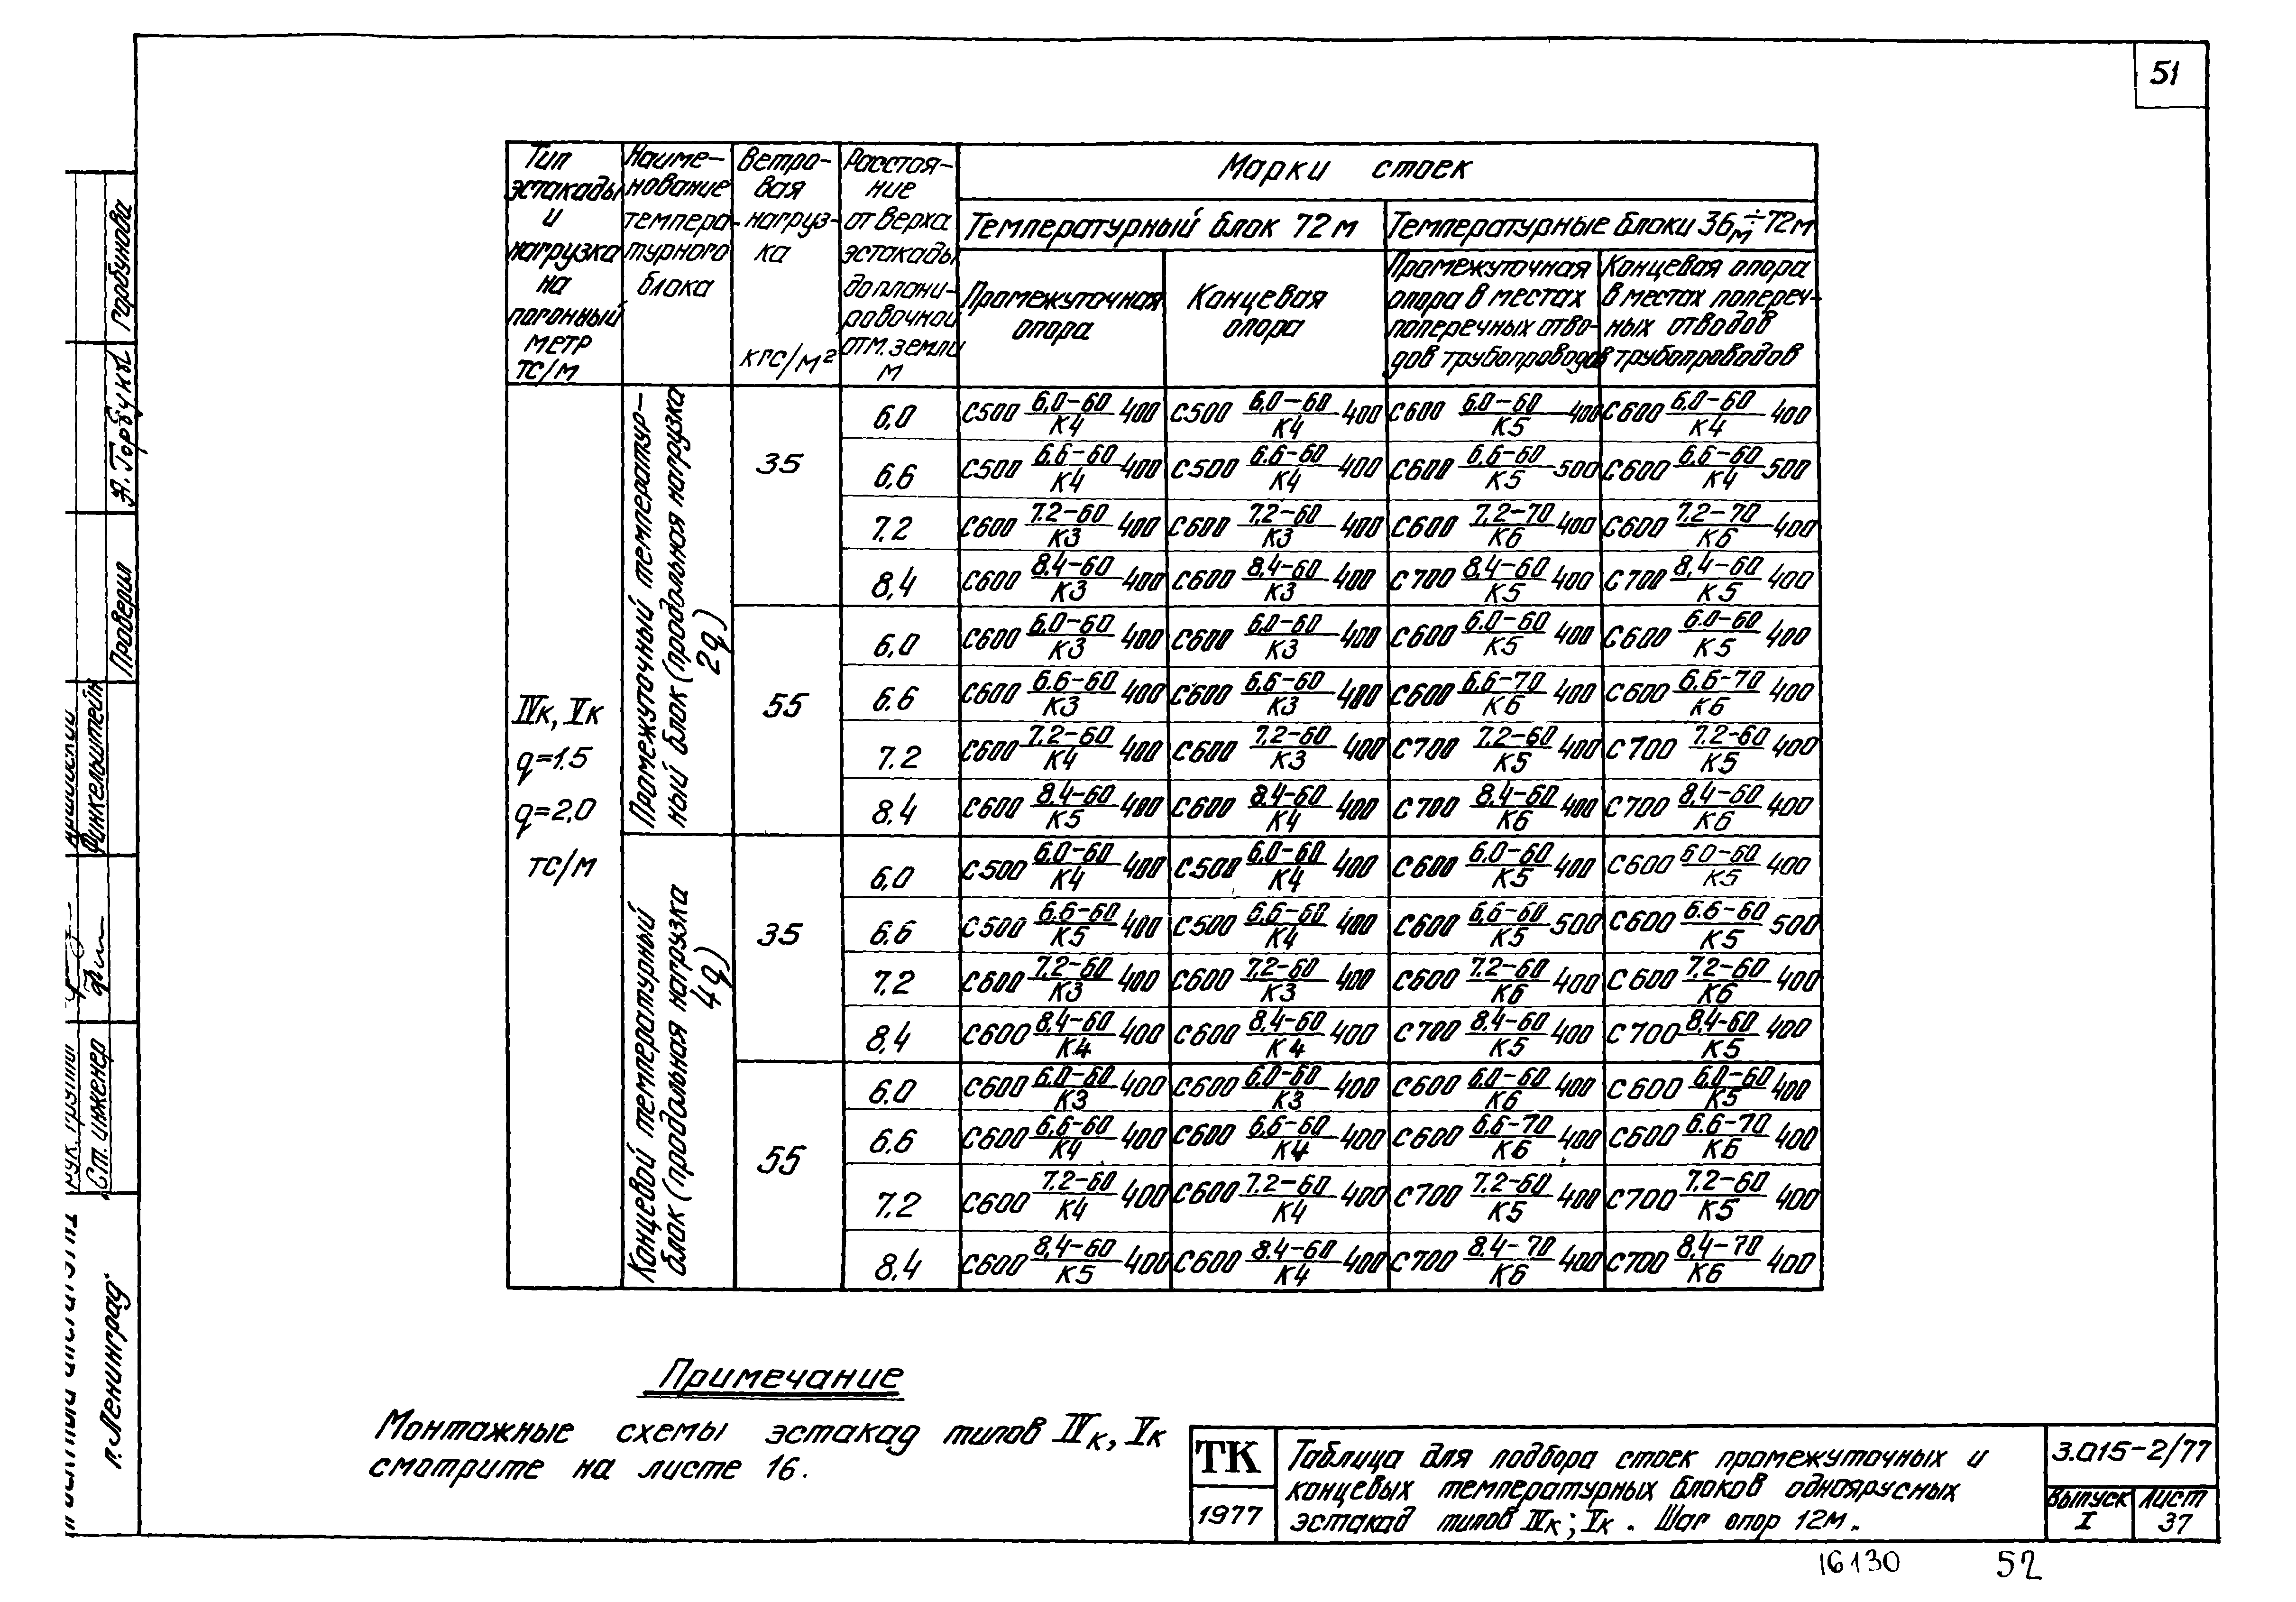 51
Тип эстакады и нагрузка на погонный метр тс/м
Наиме-нование темпера-турного блока
Ветро-вая нагруз-ка кгс/м²
Расстоя-ние от верха эстакады до плани-ровочной отм. земли м
Марки стоек
Температурный блок 72 м
Температурные блоки 36м÷72м
Промежуточная опора
Концевая опора
Промежуточная опора в местах поперечных отво-дов трубопроводов
Концевая опора в местах попереч-ных отводов трубопроводов
IVк, Vк
q=1.5
q=2,0
тс/м
Промежуточный температур-ный блок (продольная нагрузка 2q)
35
6,0 С500 6,0-60/К4 400 С500 6,0-60/К4 400 С600 6,0-60/К5 400 С600 6,0-60/К4 400
6,6 С500 6,6-60/К4 400 С500 6.6-60/К4 400 С600 6,6-60/К5 500 С600 6,6-60/К4 500
7.2 С600 7.2-60/К3 400 С600 7,2-60/К3 400 С600 7,2-70/К6 400 С600 7.2-70/К6 400
8,4 С600 8,4-60/К3 400 С600 8,4-60/К3 400 С700 8,4-60/К5 400 С700 8,4-60/К5 400
55
6,0 С600 6,0-60/К3 400 С600 6,0-60/К3 400 С600 6,0-60/К5 400 С600 6.0-60/К5 400
6.6 С600 6.6-60/К3 400 С600 6,6-60/К3 400 С600 6,6-70/К6 400 С600 6,6-70/К6 400
7.2 С600 7,2-60/К4 400 С600 7,2-60/К3 400 С700 7,2-60/К5 400 С700 7.2-60/К5 400
8.4 С600 8.4-60/К5 400 С600 8.4-60/К4 400 С700 8,4-60/К6 400 С700 8,4-60/К6 400
Концевой температурный блок (продольная нагрузка 4q)
35
6,0 С500 6,0-60/К4 400 С500 6,0-60/К4 400 С600 6,0-60/К5 400 С600 6.0-60/К5 400
6,6 С500 6.6-60/К5 400 С500 6,6-60/К4 400 С600 6,6-60/К5 500 С600 6.6-60/К5 500
7.2 С600 7,2-60/К3 400 С600 7,2-60/К3 400 С600 7.2-60/К6 400 С600 7.2-60/К6 400
8,4 С600 8,4-60/К4 400 С600 8,4-60/К4 400 С700 8,4-60/К5 400 С700 8,4-60/К5 400
55
6.0 С600 6,0-60/К3 400 С600 6,0-60/К3 400 С600 6,0-60/К6 400 С600 6,0-60/К5 400
6.6 С600 6,6-60/К4 400 С600 6,6-60/К4 400 С600 6,6-70/К6 400 С600 6.6-70/К6 400
7,2 С600 7.2-60/К4 400 С600 7.2-60/К4 400 С700 7.2-60/К5 400 С700 7.2-60/К5 400
8.4 С600 8,4-60/К5 400 С600 8.4-60/К4 400 С700 8.4-70/К6 400 С700 8,4-70/К6 400
Примечание
Монтажные схемы эстакад типов IVк, Vк
смотрите на листе 16.
ТК
1977
Таблица для подбора стоек промежуточных и
концевых температурных блоков одноярусных
эстакад типов IVк; Vк. Шаг опор 12м.
3.015-2/77
Выпуск I
Лист 37
16130 52
Горбунова
Проверил
Финкельштейн
Ст. инженер
г. Ленинград